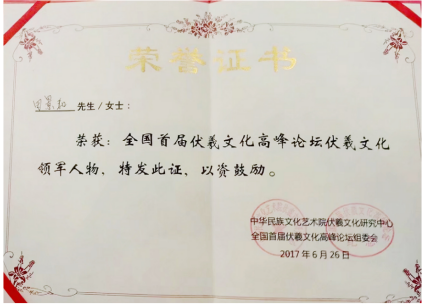 荣誉证书
先生/女士：
荣获：全国首届伏羲文化高峰论坛伏羲文化
领军人物，特发此证，以资鼓励。
中华民族文化艺术院伏羲文化研究中心
全国首届伏羲文化高峰论坛组委会
2017年6月26日